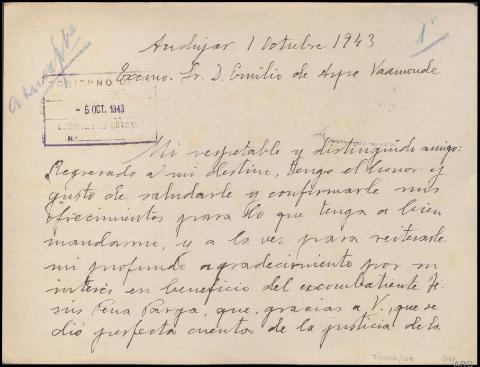 Andujar 1 Octubre 1943
1º
Excmo. Sr. D. Emilio de Aspe Vaamonde
- 6 OCT. 1943
N.º
Mi respetable y distinguido amigo:
Regresado a mi destino, tengo el honor y
gusto de saludarle y confirmarle mis
ofrecimientos para lo que tenga a bien
mandarme, y a la vez para reiterarle
mi profundo agradecimiento por su
interés en beneficio del excombatiente Je-
sús Pena Parga, que, gracias a V., que se
dió perfecta cuenta de la justicia de la